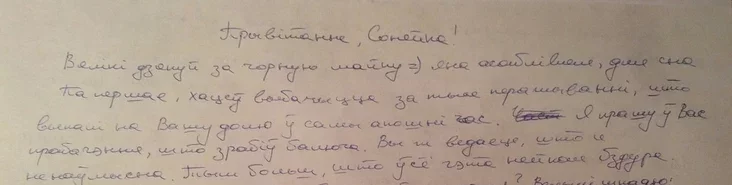 Прывітанне, Сонейка!
Вялікі дзякуй за чорную майку =) яна асаблівая, для сна
Па першае, хацеў выбачыцца за тыя перажыванні, што
выпалі на Вашу долю ў самы апошні час. Я прашу ў Вас
прабачэння, што зрабіў балюча. Вы ж ведаеце, што не
ненаўмысна. Тым больш, што ўсё гэта нейкая бздура.
? Вялікі